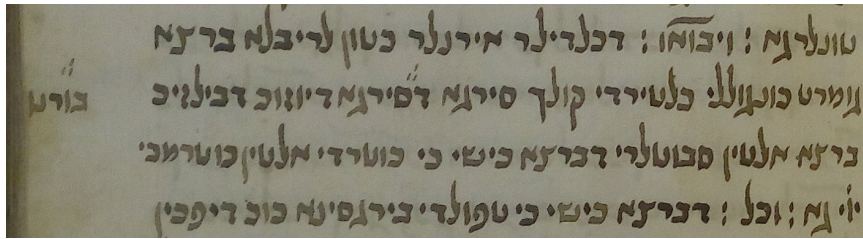 טונלרגא : ויבואו : דכלדילר אירנלר כטון לריבלא ברצא
גומרט כונגוללי כלטירדי קולך סירגא דסירגא דיוזוכ דבילזיכ בורט
ברצא אלטין סבוטלרי דברצא כישי כי כוטרדי אלטין כוטרמכי
ייי גא : וכל : דברצא כישי כי טפולדי בירגסינא כוכ דיפכין